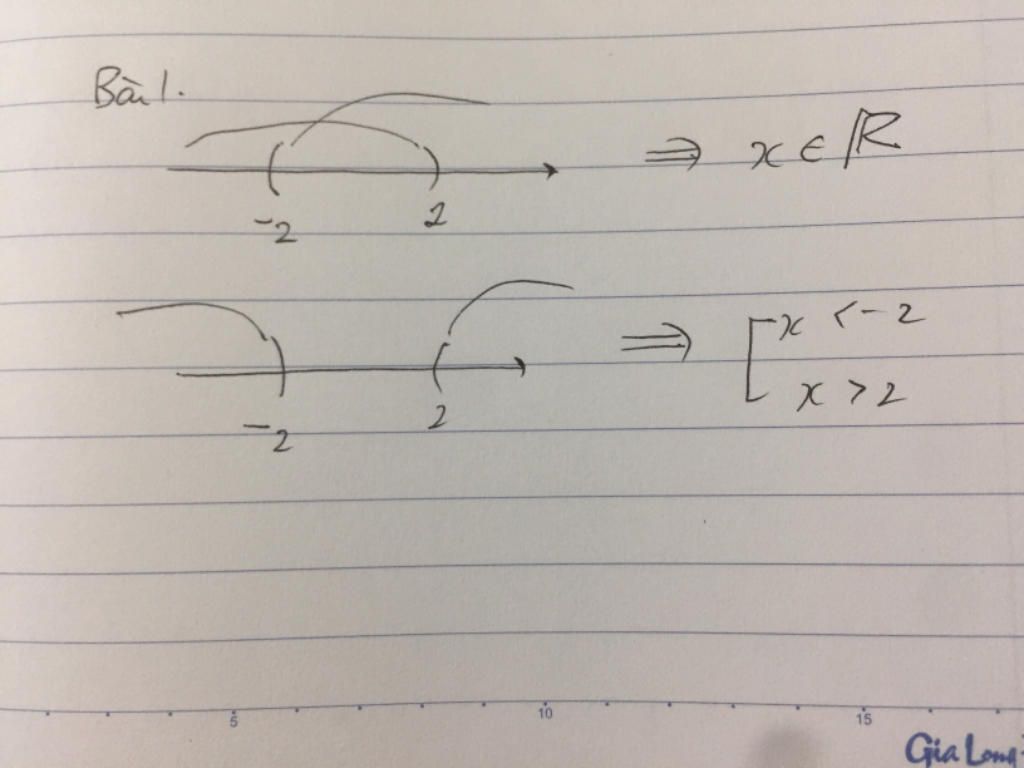 Bài 1.
( ) ⇒ x ∈ ℝ
-2 2
) ( ⇒ [ x < -2
-2 2 x > 2
5 10 15
Gia Long